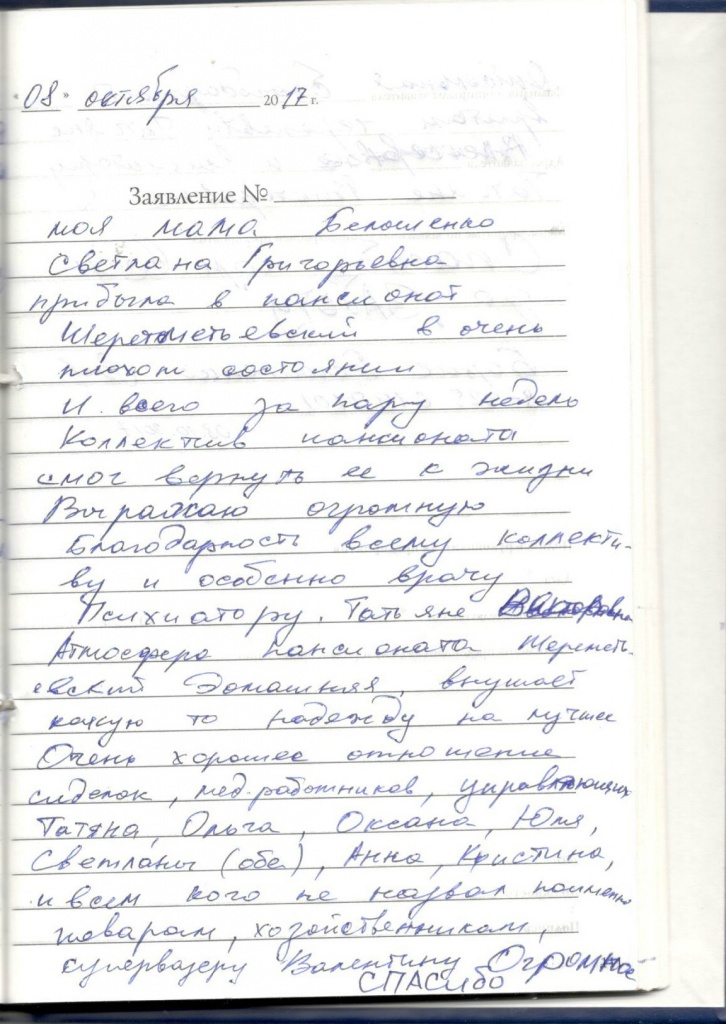 "08" октября 2017 г.
Заявление №
моя мама
Светлана Григорьевна
прибыла в пансионат
Шереметьевский в очень
плохом состоянии
И всего за пару недель
Коллектив пансионата
смог вернуть ее к жизни
Выражаю огромную
Благодарность всему коллекти-
ву и особенно врачу
Психиатору. Татьяне
Атмосфера пансионата Шереметь-
евский домашняя, внушает
какую то надежду на лучшее
Очень хорошее отношение
сиделок, мед.работников, управляющих
Татяна, Ольга, Оксана, Юля,
Светланы (обе), Анна, Кристина,
и всем кого не назвал поименно
поварам, хозяйственникам,
супервазеру Валентину Огромное
СПАСИБО